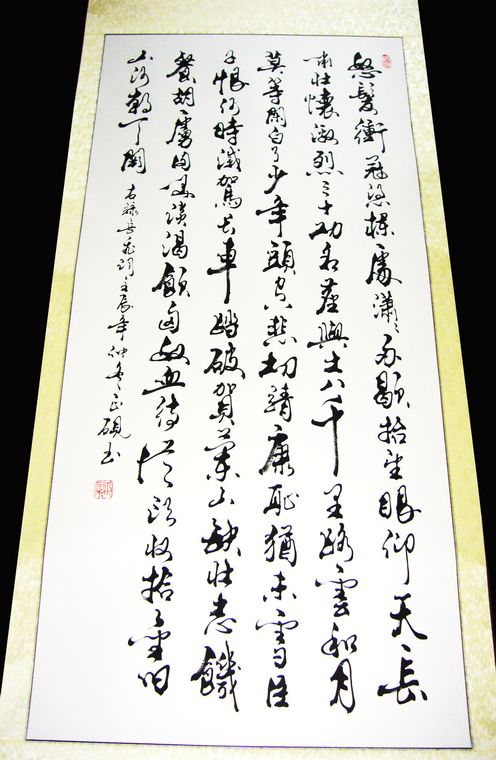 怒髮衝冠憑欄處瀟々雨歇抬望眼仰天長
嘯壯懷激烈三十功名塵與土八千里路雲和月
莫等閒白了少年頭空悲切靖康恥猶未雪臣
子恨何時滅駕長車踏破賀蘭山缺壯志饑
餐胡虜肉笑談渴飲匈奴血待從頭收拾旧
山河朝闕
右錄岳飛詞壬辰年仲冬正硯書